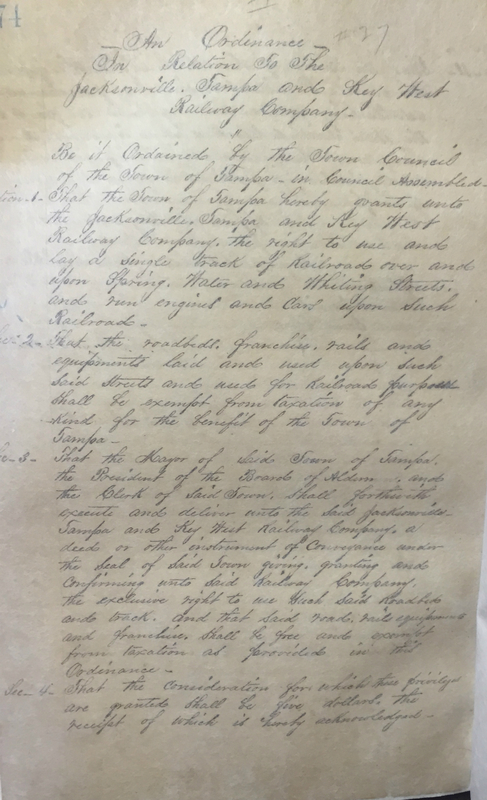 74
#37
An Ordinance
In Relation To The
Jacksonville, Tampa and Key West
Railway Company-
"
Be it Ordained by the Town Council
of the Town of Tampa- in Council Assembled-
tion-1- That the Town of Tampa hereby grants unto
the Jacksonville, Tampa and Key West
Railway Company, the right to use and
lay a single track of Railroad over and
upon Spring, Water and Whiting Streets,
and run engines and Cars upon such
Railroad-
Sec-2- That the roadbeds, franchise, rails and
equipments laid and used upon such
said Streets and used for Railroad purposes
shall be exempt from taxation of any
kind for the benefit of the Town of
Tampa-
Sec-3- That the Mayor of said Town of Tampa,
the President of the Board of Aldm and
the Clerk of Said Town, Shall forthwith
execute and deliver unto the said Jacksonville-
Tampa and Key West Railway Company, a
deed or other instrument of Conveyance under
the seal of Said Town giving, granting and
Confirming unto said Railway Company,
the exclusive right to use such said Roadbed
and track. And that said road, rails equipments
and franchise, shall be free and exempt
from taxation as provided in this
Ordinance-
Sec-4- That the Consideration for which these privileges
are granted shall be five dollars, the
receipt of which is hereby acknowledged-